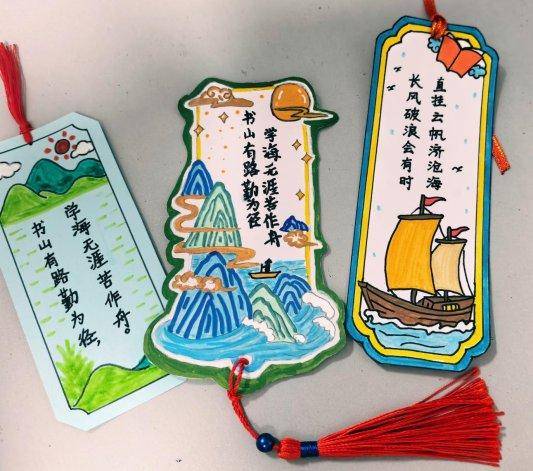 书山有路勤为径，
学海无涯苦作舟。
书山有路勤为径
学海无涯苦作舟
长风破浪会有时
直挂云帆济沧海